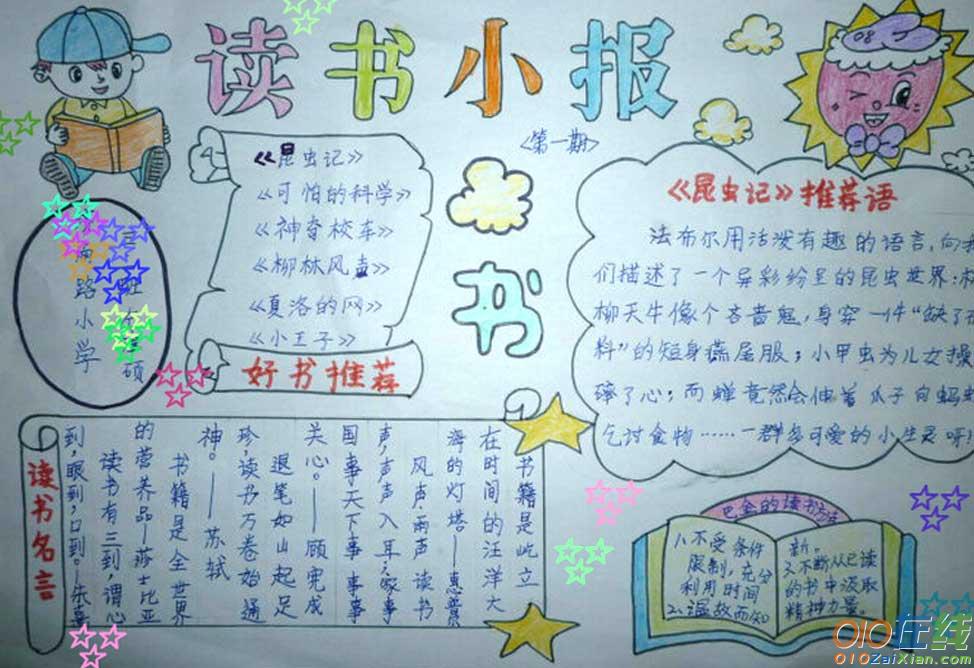 读书小报
<第一期>
《昆虫记》
《可怕的科学》
《神奇校车》
《柳林风声》
《夏洛的网》
《小王子》
好书推荐
路小学
硕
书
《昆虫记》推荐语
法布尔用活泼有趣的语言,向我
们描述了一个异彩纷呈的昆虫世界:
柳天牛像个吝啬鬼,身穿一件“缺了布
料”的短身燕尾服;小甲虫为儿女操
碎了心;而蝉竟然会伸着爪子向蚂蚁
乞讨食物……一群多可爱的小生灵呀
读书名言
书籍是屹立
在时间的汪洋大
海的灯塔。——惠普
风声雨声读书
声,声声入耳;家事
国事天下事事事
关心。——顾宪成
退笔如山起足
珍,读书万卷始通
神。——苏轼
书籍是全世界
的营养品—莎士比亚
读书有三到,谓心
到,眼到,口到。—朱熹
巴金的读书方法
1、不受条件
限制,充分
利用时间
2、温故而知
新。
3.不断从已读
的书中汲取
精神力量。
08
010在线
010ZaiXian.com